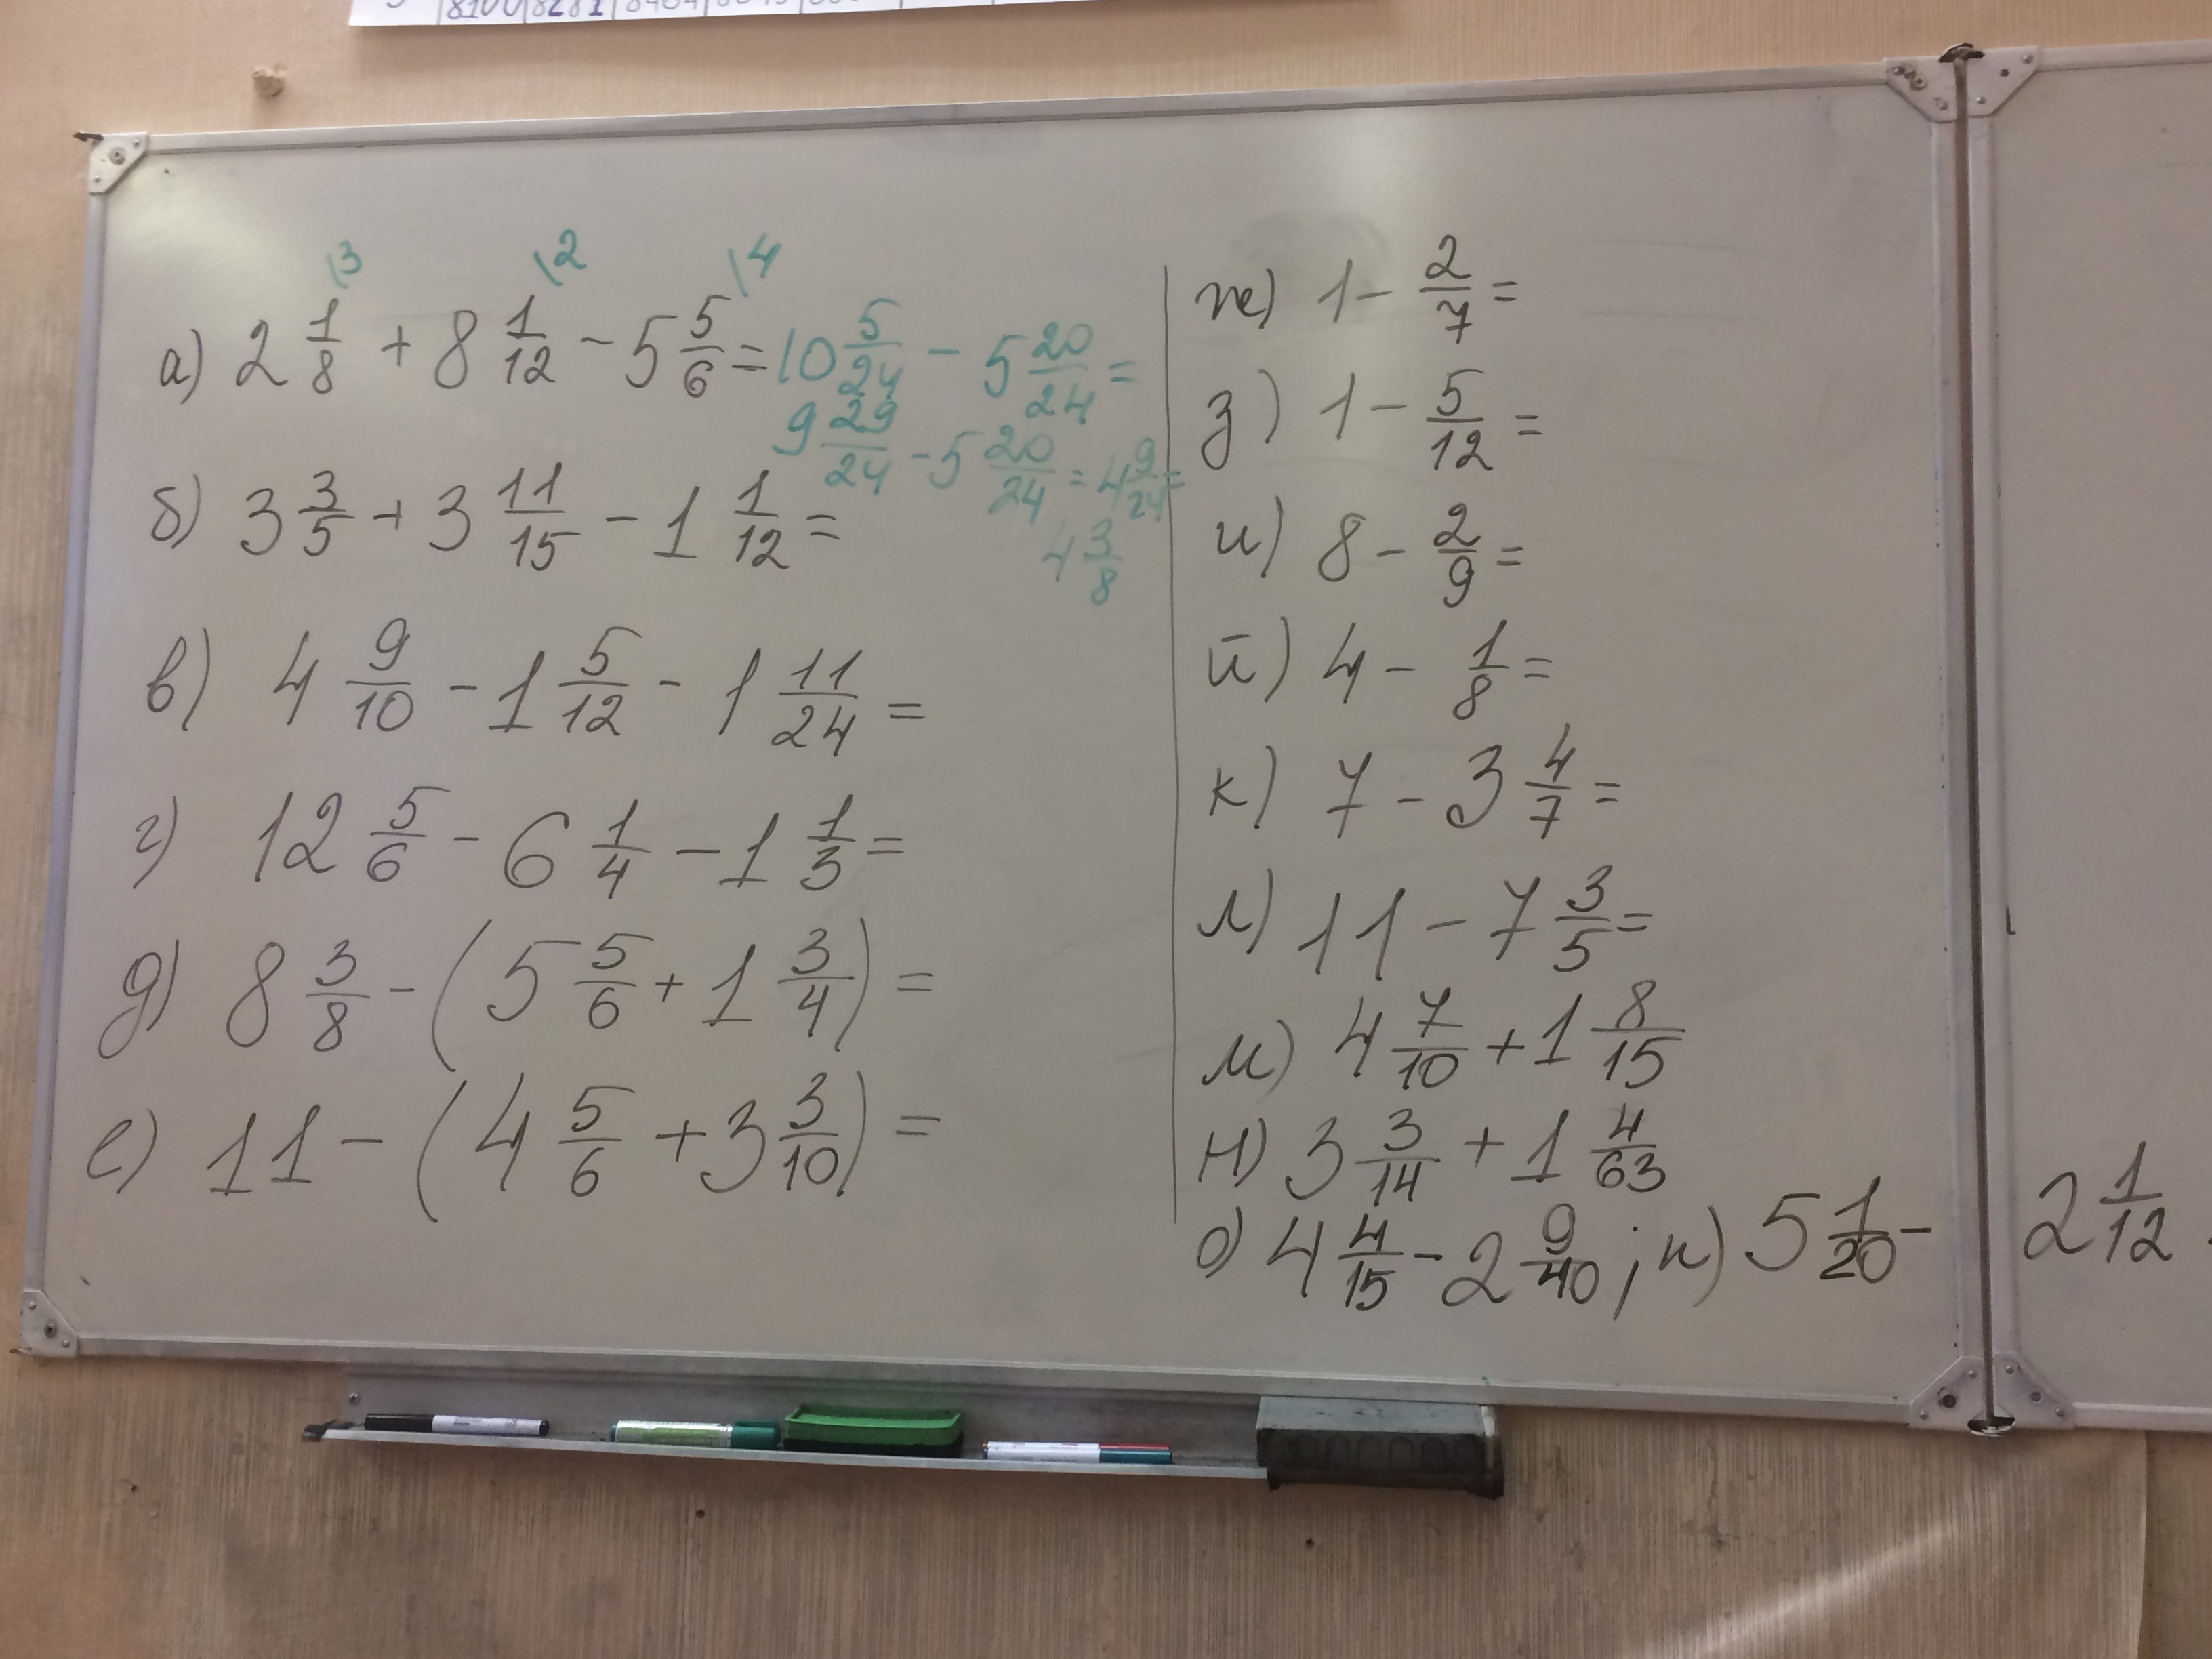 8100 8281
а) 2 1/8 \3 + 8 1/12 \2 − 5 5/6 \4 = 10 5/24 − 5 20/24 =
9 29/24 − 5 20/24 = 4 9/24 =
4 3/8
б) 3 3/5 + 3 11/15 − 1 1/12 =
в) 4 9/10 − 1 5/12 − 1 11/24 =
г) 12 5/6 − 6 1/4 − 1 1/3 =
д) 8 3/8 − (5 5/6 + 1 3/4) =
е) 11 − (4 5/6 + 3 3/10) =
ж) 1 − 2/7 =
з) 1 − 5/12 =
и) 8 − 2/9 =
й) 4 − 1/8 =
к) 7 − 3 4/7 =
л) 11 − 7 3/5 =
м) 4 7/10 + 1 8/15
н) 3 3/14 + 1 4/63
о) 4 4/15 − 2 9/40 ; п) 5 1/20 − 2 1/12